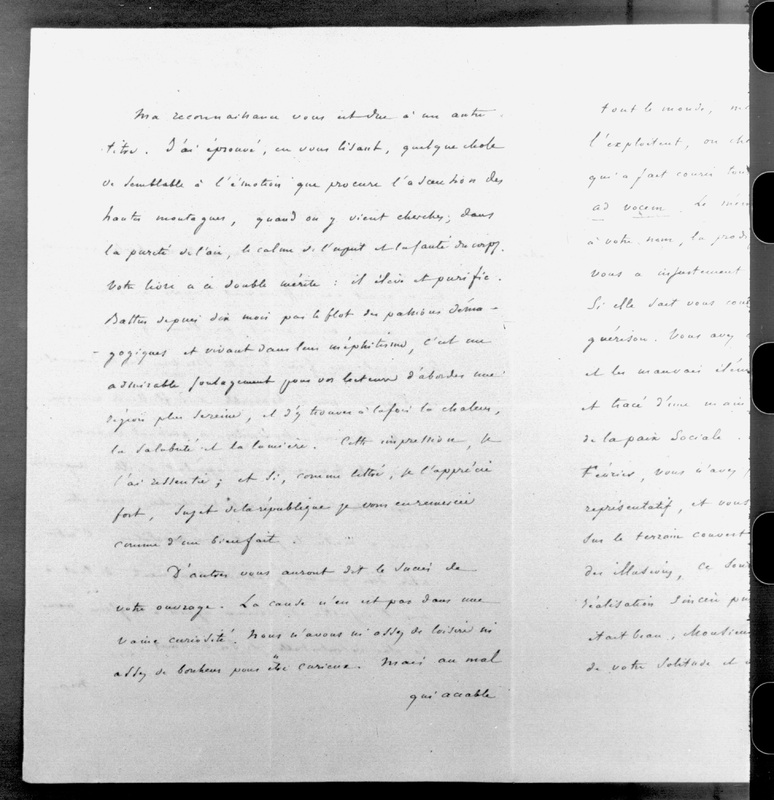 Ma reconnaissance vous est due à un autre
titre. J'ai éprouvé, en vous lisant, quelque chose
de semblable à l'émotion que procure l'ascension des
hautes montagnes, quand on y vient chercher, dans
la pureté de l'air, le calme de l'esprit et la santé du corps.
Votre livre a ce double mérite : il élève et purifie.
Battus depuis dix mois par le flot des passions déma-
-gogiques et vivant dans leur méphitisme, c'est un
admirable soulagement pour vos lecteurs d'aborder une
région plus sereine, et d'y trouver à la fois la chaleur,
la salubrité et la lumière. Cette impression, je
l'ai ressentie ; et si, comme lettré, je l'apprécie
fort, sujet de la république je vous en remercie
comme d'un bienfait.
D'autres vous auront dit le succès de
votre ouvrage. La cause n'en est pas dans une
vaine curiosité. Nous n'avons ni assez de loisir ni
assez de bonheur pour être curieux. Mais au mal
qui accable
tout le monde,
l'exploitent, ou
qui a fait courir
ad vocem. Le
à votre nom, la
vous a injustement
Si elle doit vous
guérison. Vous avez
et les mauvais
et tracé d'une main
de la paix sociale.
Février, vous n'avez
représentatif, et vous
sur le terrain couvert
des illusions, ce
réalisation sincère
était beau, Monsieur
de votre solitude et